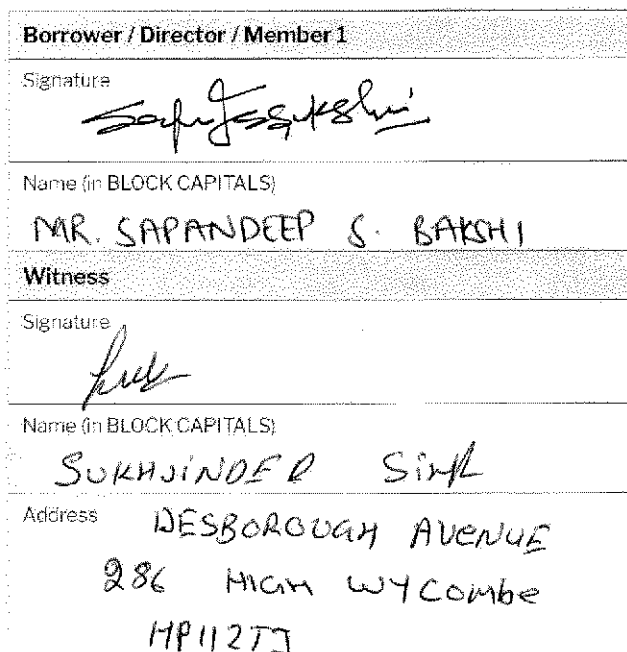 Borrower / Director / Member 1
Signature
Name (in BLOCK CAPITALS)
MR. SAPANDEEP S. BAKSHI
Witness
Signature
Name (in BLOCK CAPITALS)
SUKHJiNDER
Address DESBOROUGH AVENUE
286 HIGH WYCombe
HP112TJ